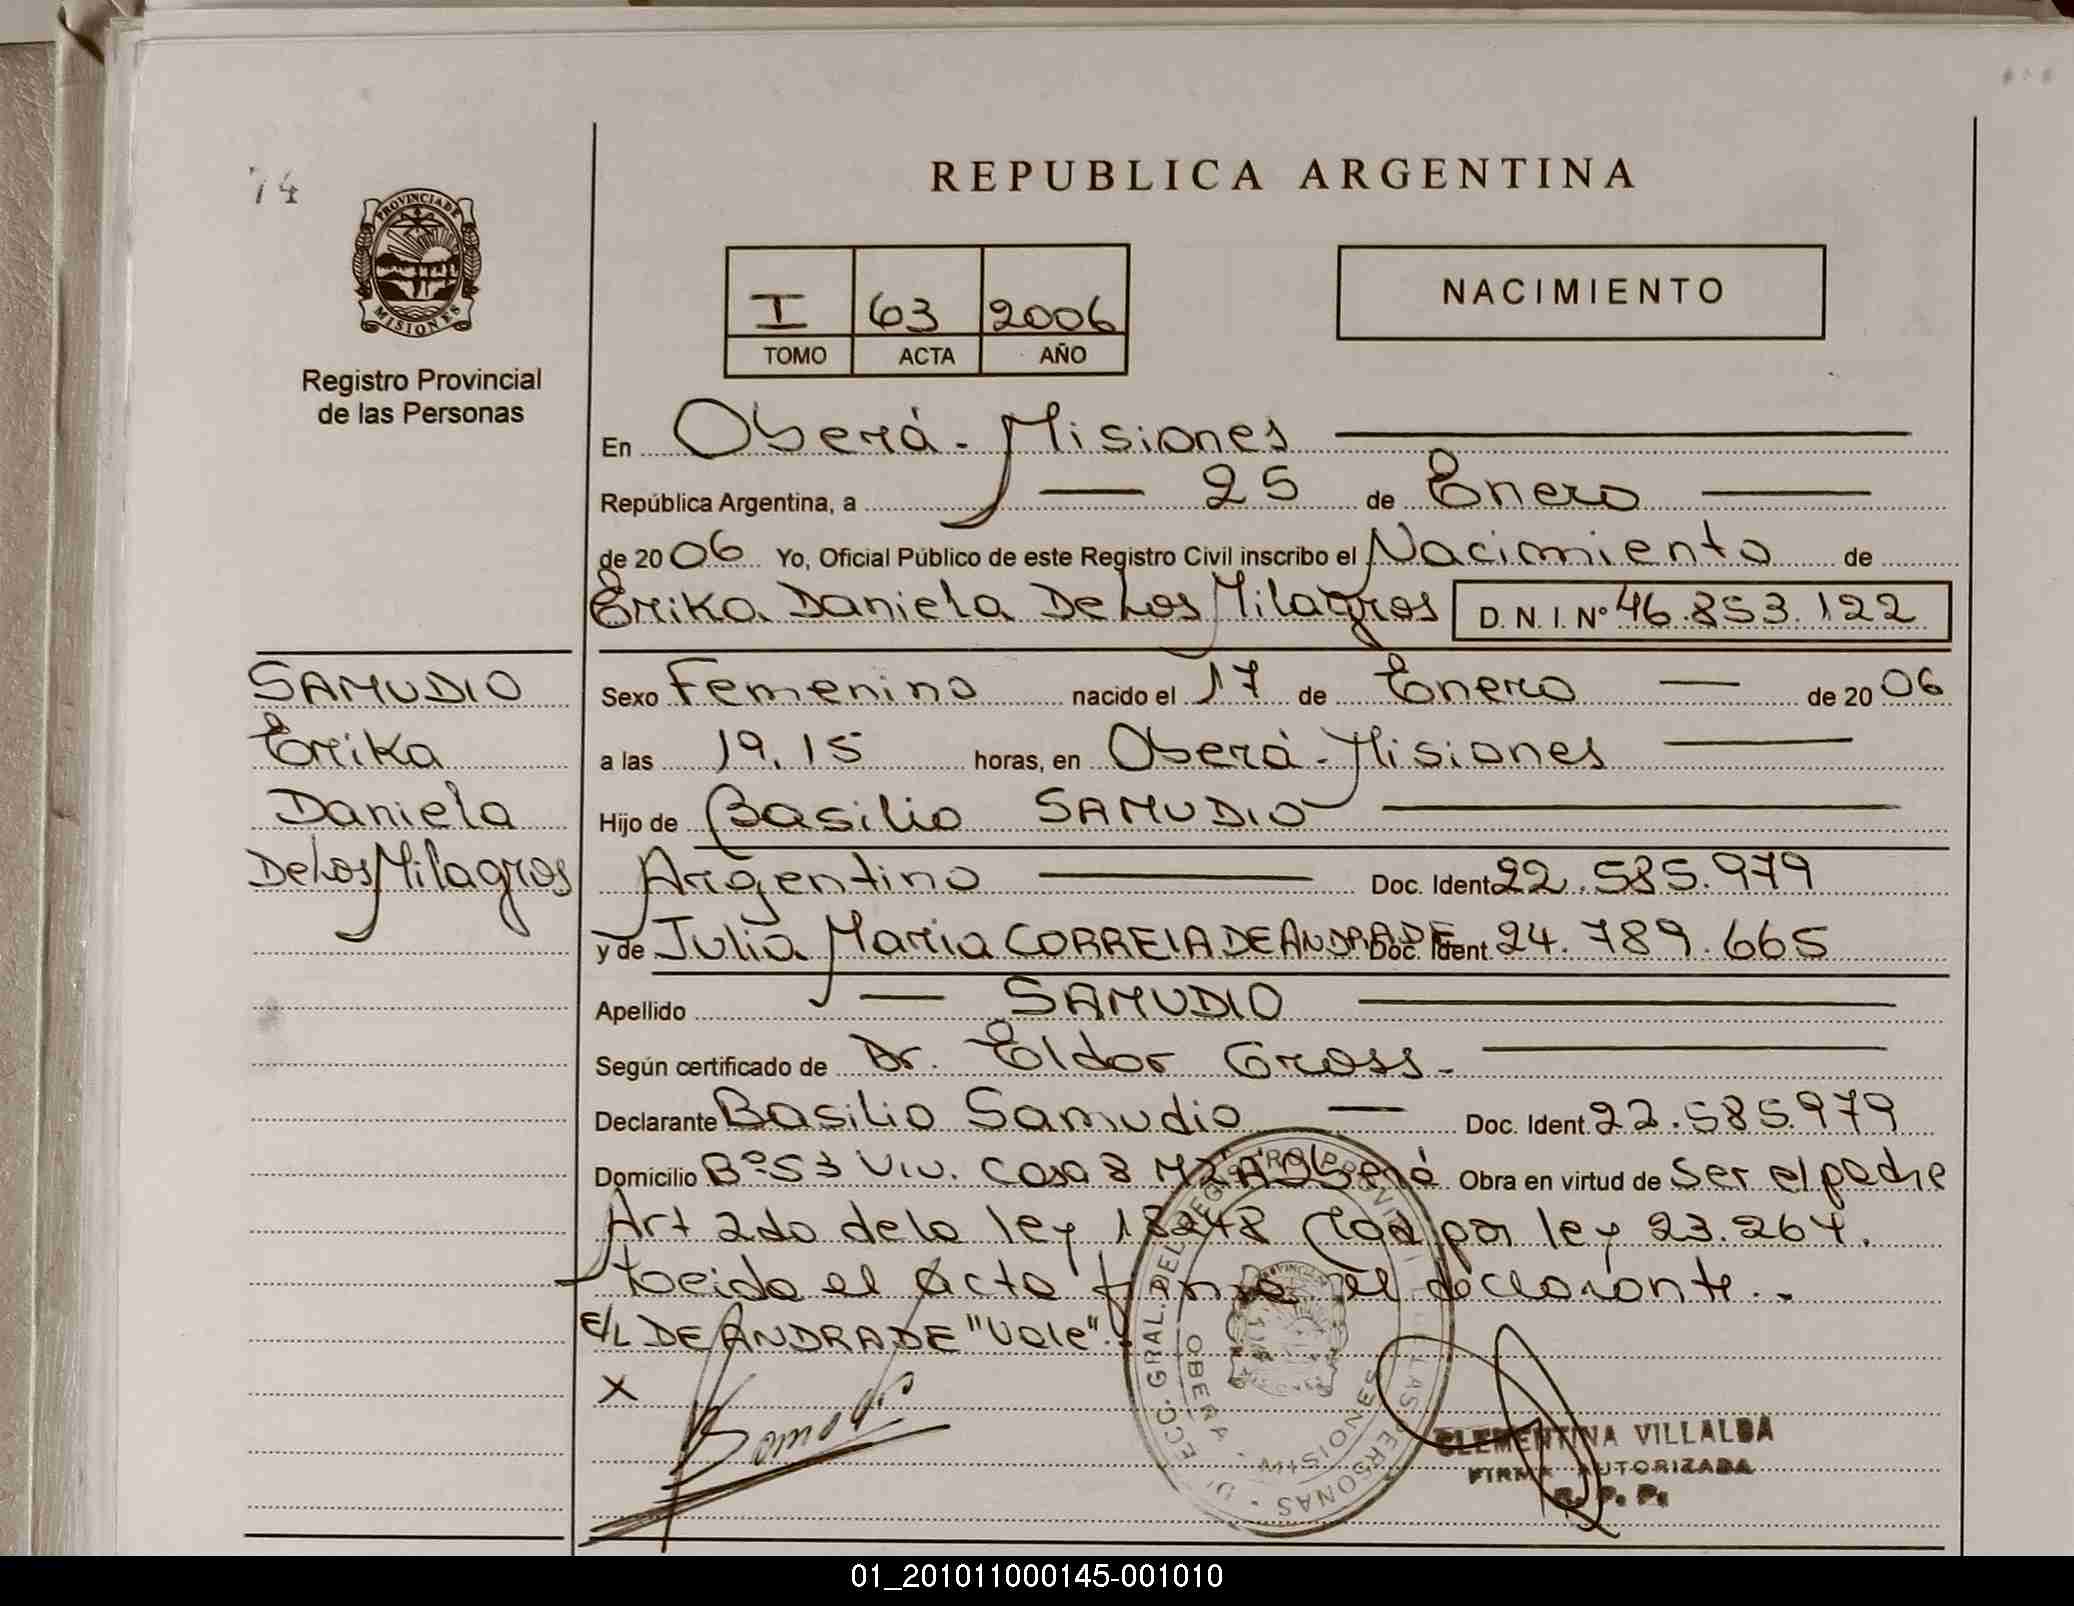 74
PROVINCIA DE
MISIONES
Registro Provincial
de las Personas
REPUBLICA ARGENTINA
I 63 2006
TOMO ACTA AÑO
NACIMIENTO
En Oberá - Misiones
República Argentina, a 25 de Enero
de 2006 Yo, Oficial Público de este Registro Civil inscribo el Nacimiento de
Erika Daniela De Los Milagros D. N. I. Nº 46.853.122
SAMUDIO
Erika
Daniela
De Los Milagros
Sexo Femenino nacido el 17 de Enero de 2006
a las 19.15 horas, en Oberá - Misiones
Hijo de Basilio SAMUDIO
Argentino Doc. Ident. 22.585.979
y de Julia Maria CORREIA DE ANDRADE Doc. Ident. 24.789.665
Apellido SAMUDIO
Según certificado de Dr. Eldor Gross.-
Declarante Basilio Samudio Doc. Ident. 22.585.979
Domicilio Bº 53 Viv. Casa 8 MZ A Oberá Obra en virtud de Ser el padre
Art 2do de la ley 18248 Mod por ley 23.264.
Leida el Acta firma el declarante..
E/L DE ANDRADE "Vale".
X
DIRECC. GRAL. DEL REGISTRO PROVINCIAL DE LAS PERSONAS
OBERA - MISIONES
CLEMENTINA VILLALBA
FIRMA AUTORIZADA
R. P. P.
01_201011000145-001010